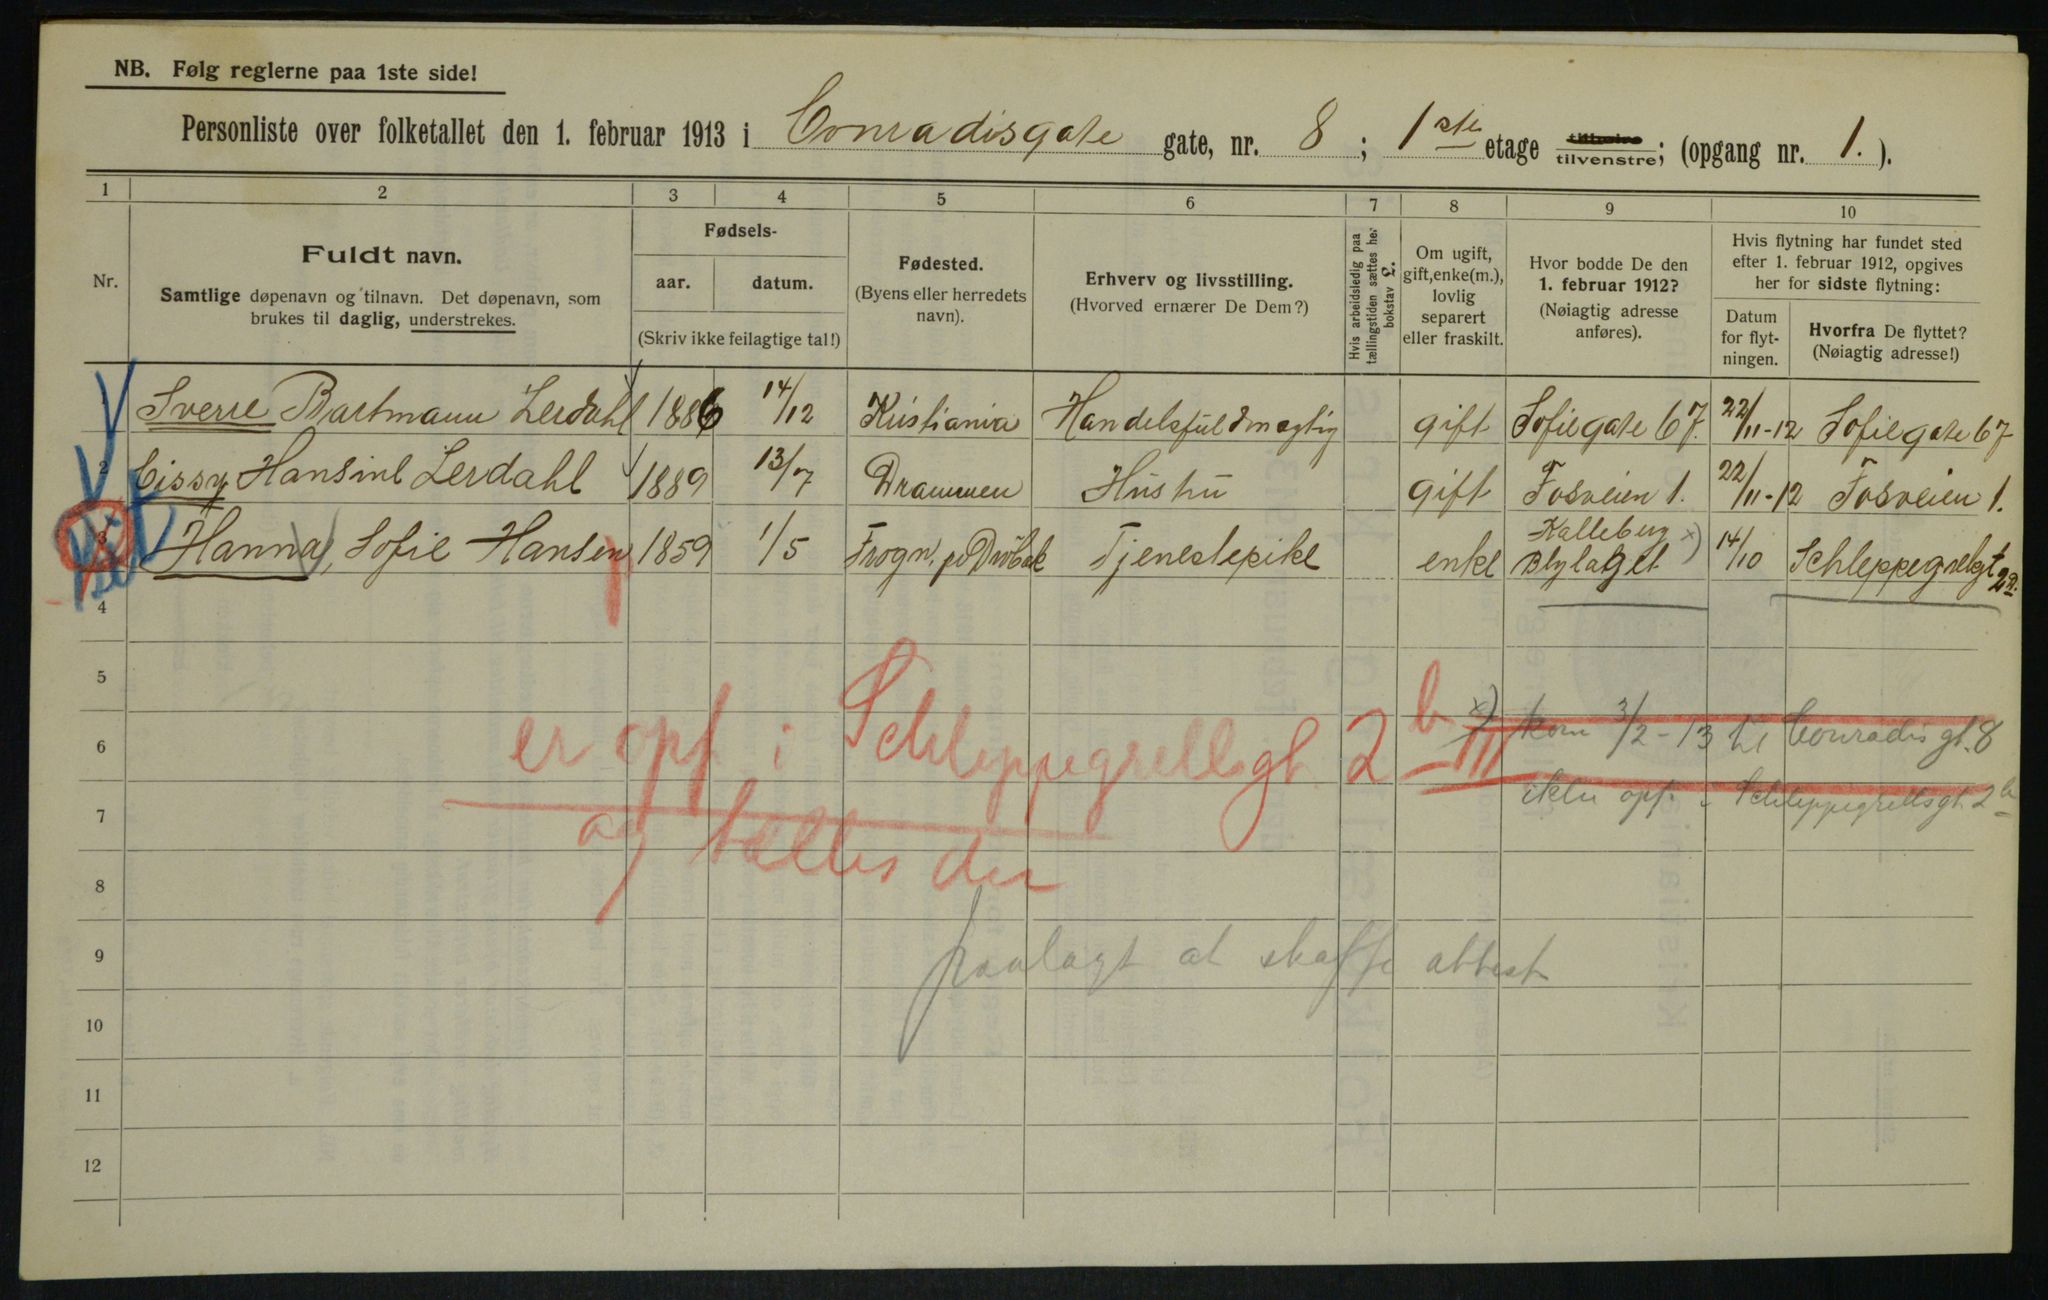 NB. Følg reglerne paa 1ste side!
Personliste over folketallet den 1. februar 1913 i Conradisgate gate, nr. 8 ; 1ste etage tilvenstre; (opgang nr. 1. ).
1 2 3 4 5 6 7 8 9 10
Nr.
Fuldt navn.
Samtlige døpenavn og tilnavn. Det døpenavn, som
brukes til daglig, understrekes.
Fødsels-
aar. datum.
(Skriv ikke feilagtige tal!)
Fødested.
(Byens eller herredets
navn).
Erhverv og livsstilling.
(Hvorved ernærer De Dem?)
Hvis arbeidsledig paa
tællingstiden sættes her
bokstav L.
Om ugift,
gift, enke(m.),
lovlig
separert
eller fraskilt.
Hvor bodde De den
1. februar 1912?
(Nøiagtig adresse
anføres).
Hvis flytning har fundet sted
efter 1. februar 1912, opgives
her for sidste flytning:
Datum
for flyt-
ningen.
Hvorfra De flyttet?
(Nøiagtig adresse!)
Sverre Bartmann Lerdahl 1886 14/12 Kristiania Handelsfuldmægtig gift Sofiegate 67. 22/11-12 Sofiegate 67
2 Cissy Hansine Lerdahl 1889 13/7 Drammen Hustru gift Fosveien 1. 22/11-12 Fosveien 1.
3 Hanna, Sofie Hansen 1859 1/5 Frogn. pr Drøbak Tjenestepike enke Kalleberg x)
Blylaget 14/10 Schleppegrelsgt 2B.
4
5
er opf i Schleppegrellsgt 2 b III
6 x) kom 3/2-13 til Conradisgt. 8
7 ikke opf. i Schleppegrellsgt. 2b
og tælles der
8
9 paalagt at skaffe attest
10
11
12